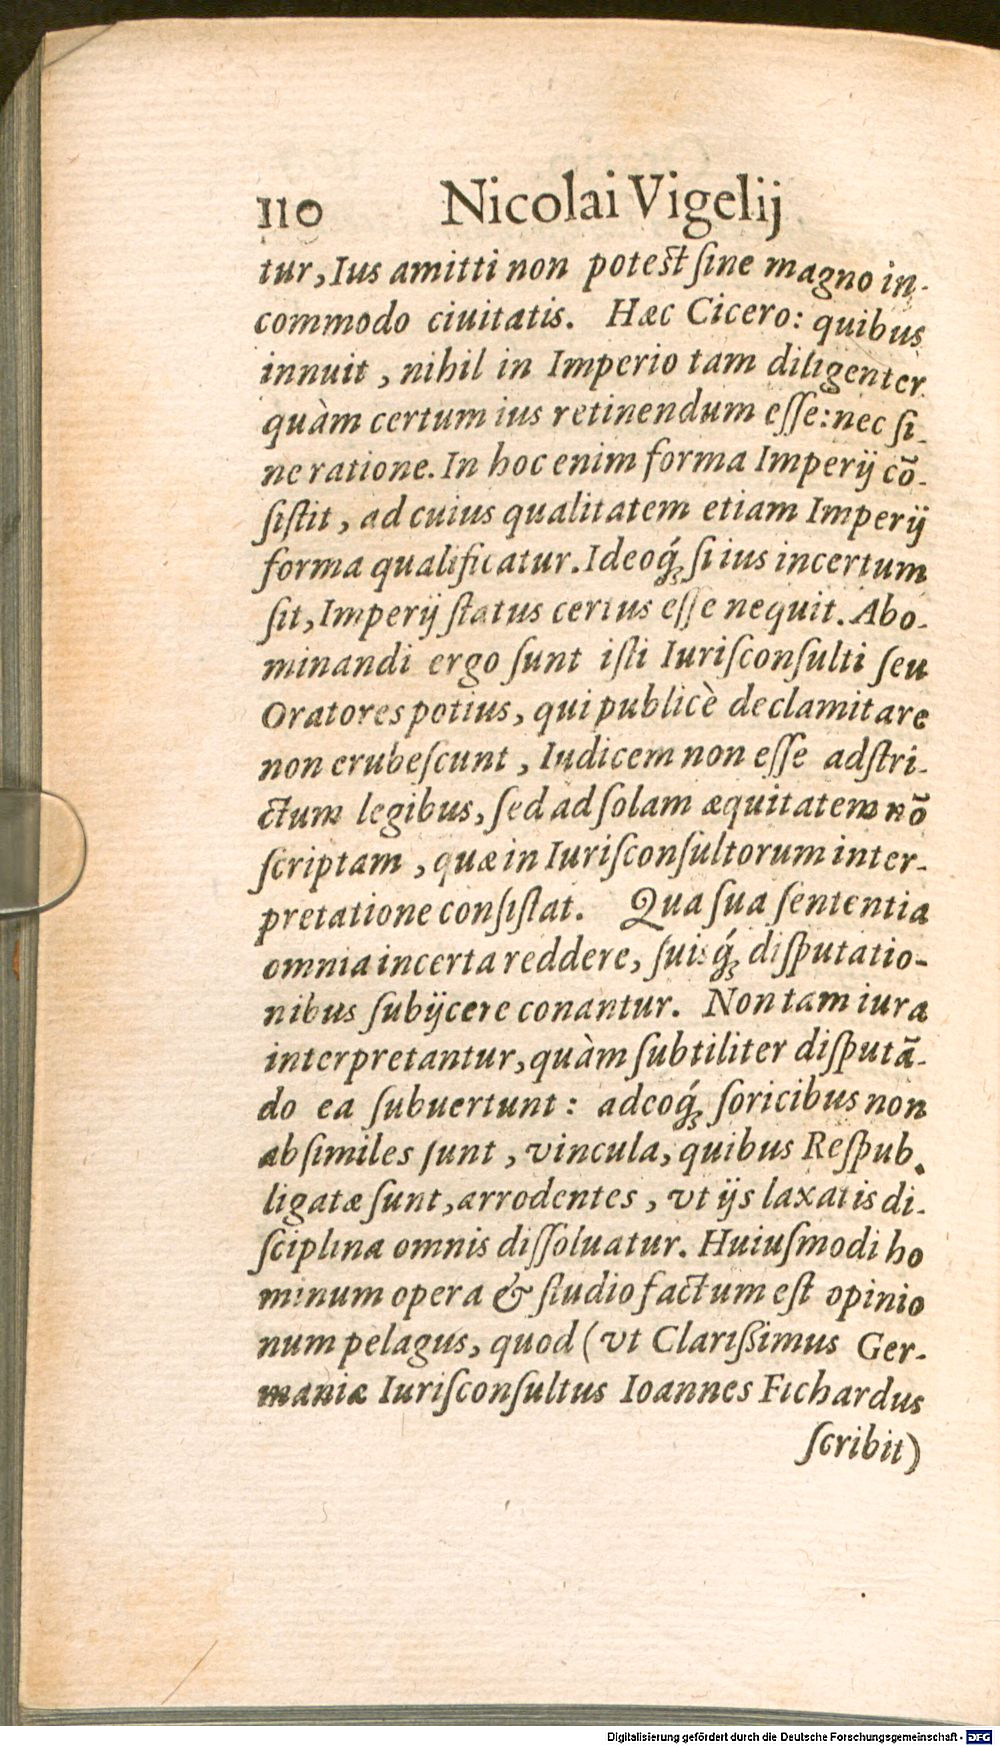 110 Nicolai Vigelij
tur, Ius amitti non poteſt ſine magno in-
commodo ciuitatis. Hæc Cicero: quibus
innuit, nihil in Imperio tam diligenter
quàm certum ius retinendum eſſe: nec ſi-
ne ratione. In hoc enim forma Imperij cō-
ſiſtit, ad cuius qualitatem etiam Imperij
forma qualificatur. Ideoq́ꝫ ſi ius incertum
ſit, Imperij ſtatus certus eſſe nequit. Abo-
minandi ergo ſunt iſti Iuriſconſulti ſeu
Oratores potius, qui publicè declamitare
non erubeſcunt, Iudicem non eſſe adſtri-
ctum legibus, ſed ad ſolam æquitatem nō
ſcriptam, quæ in Iuriſconſultorum inter-
pretatione conſiſtat. Qua ſua ſententia
omnia incerta reddere, ſuisq́ꝫ diſputatio-
nibus ſubijcere conantur. Non tam iura
interpretantur, quàm ſubtiliter diſputā-
do ea ſubuertunt: adeoq́ꝫ ſoricibus non
abſimiles ſunt, vincula, quibus Reſpub.
ligatæ ſunt, arrodentes, vt ijs laxatis di-
ſciplina omnis diſſoluatur. Huiuſmodi ho
minum opera & ſtudio factum eſt opinio
num pelagus, quod (vt Clarißimus Ger-
maniæ Iuriſconſultus Ioannes Fichardus
ſcribit)
Digitalisierung gefördert durch die Deutsche Forschungsgemeinschaft - DFG